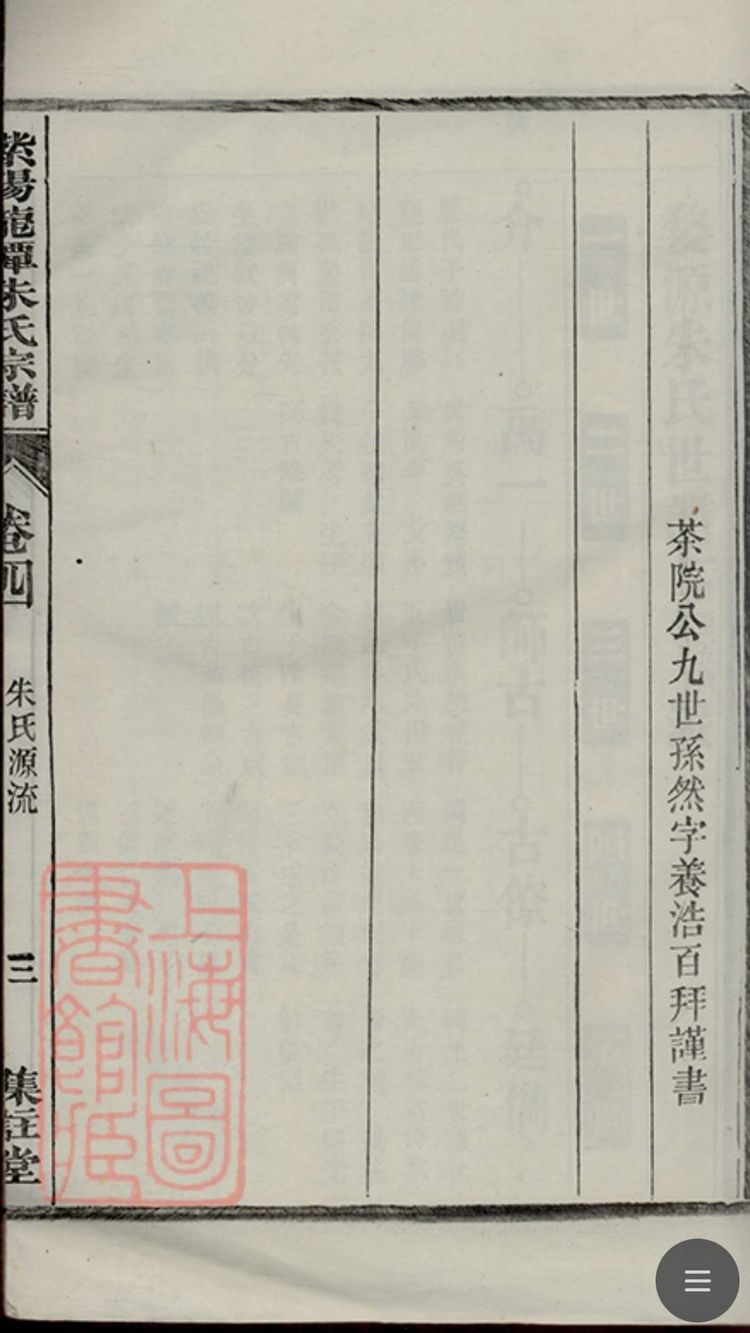 茶院公九世孫然字養浩百拜謹書
紫陽龍潭朱氏宗譜
卷四
朱氏源流
三
集註堂
上海圖
書館藏